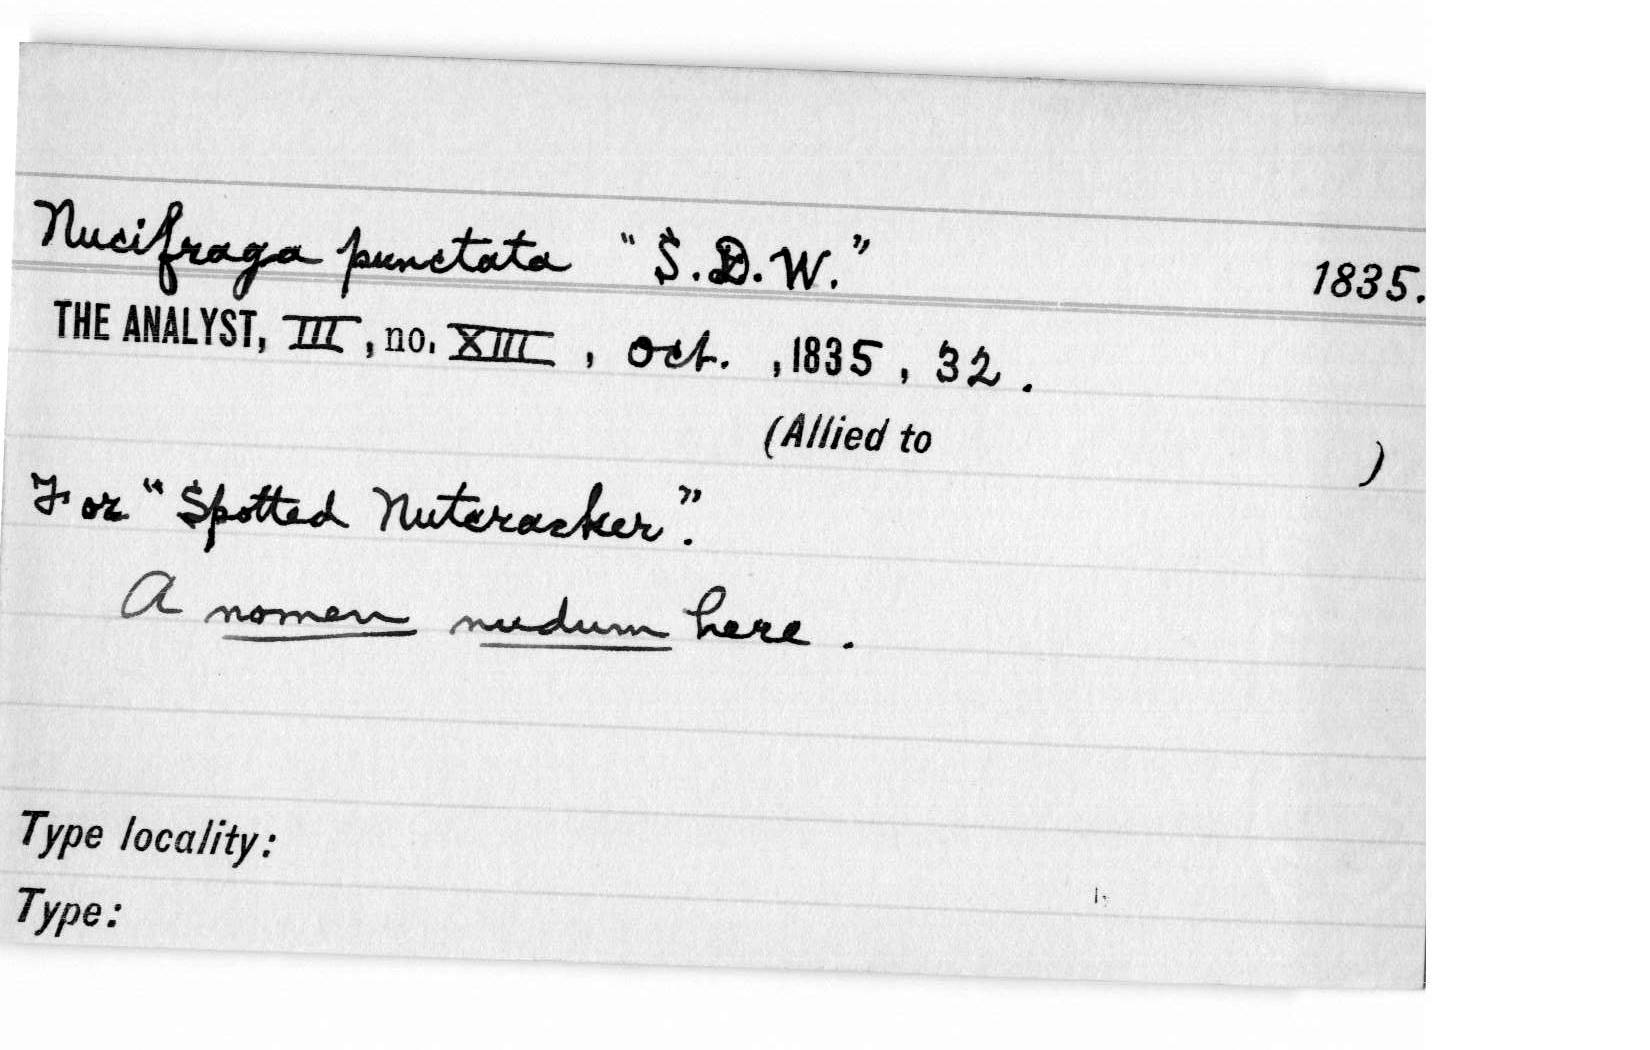 Nucifraga punctata "S.D.W." 1835.
THE ANALYST, III, no. XIII, Oct., 1835, 32.
(Allied to )
For "Spotted Nutcracker".
A nomen nudum here.
Type locality:
Type: